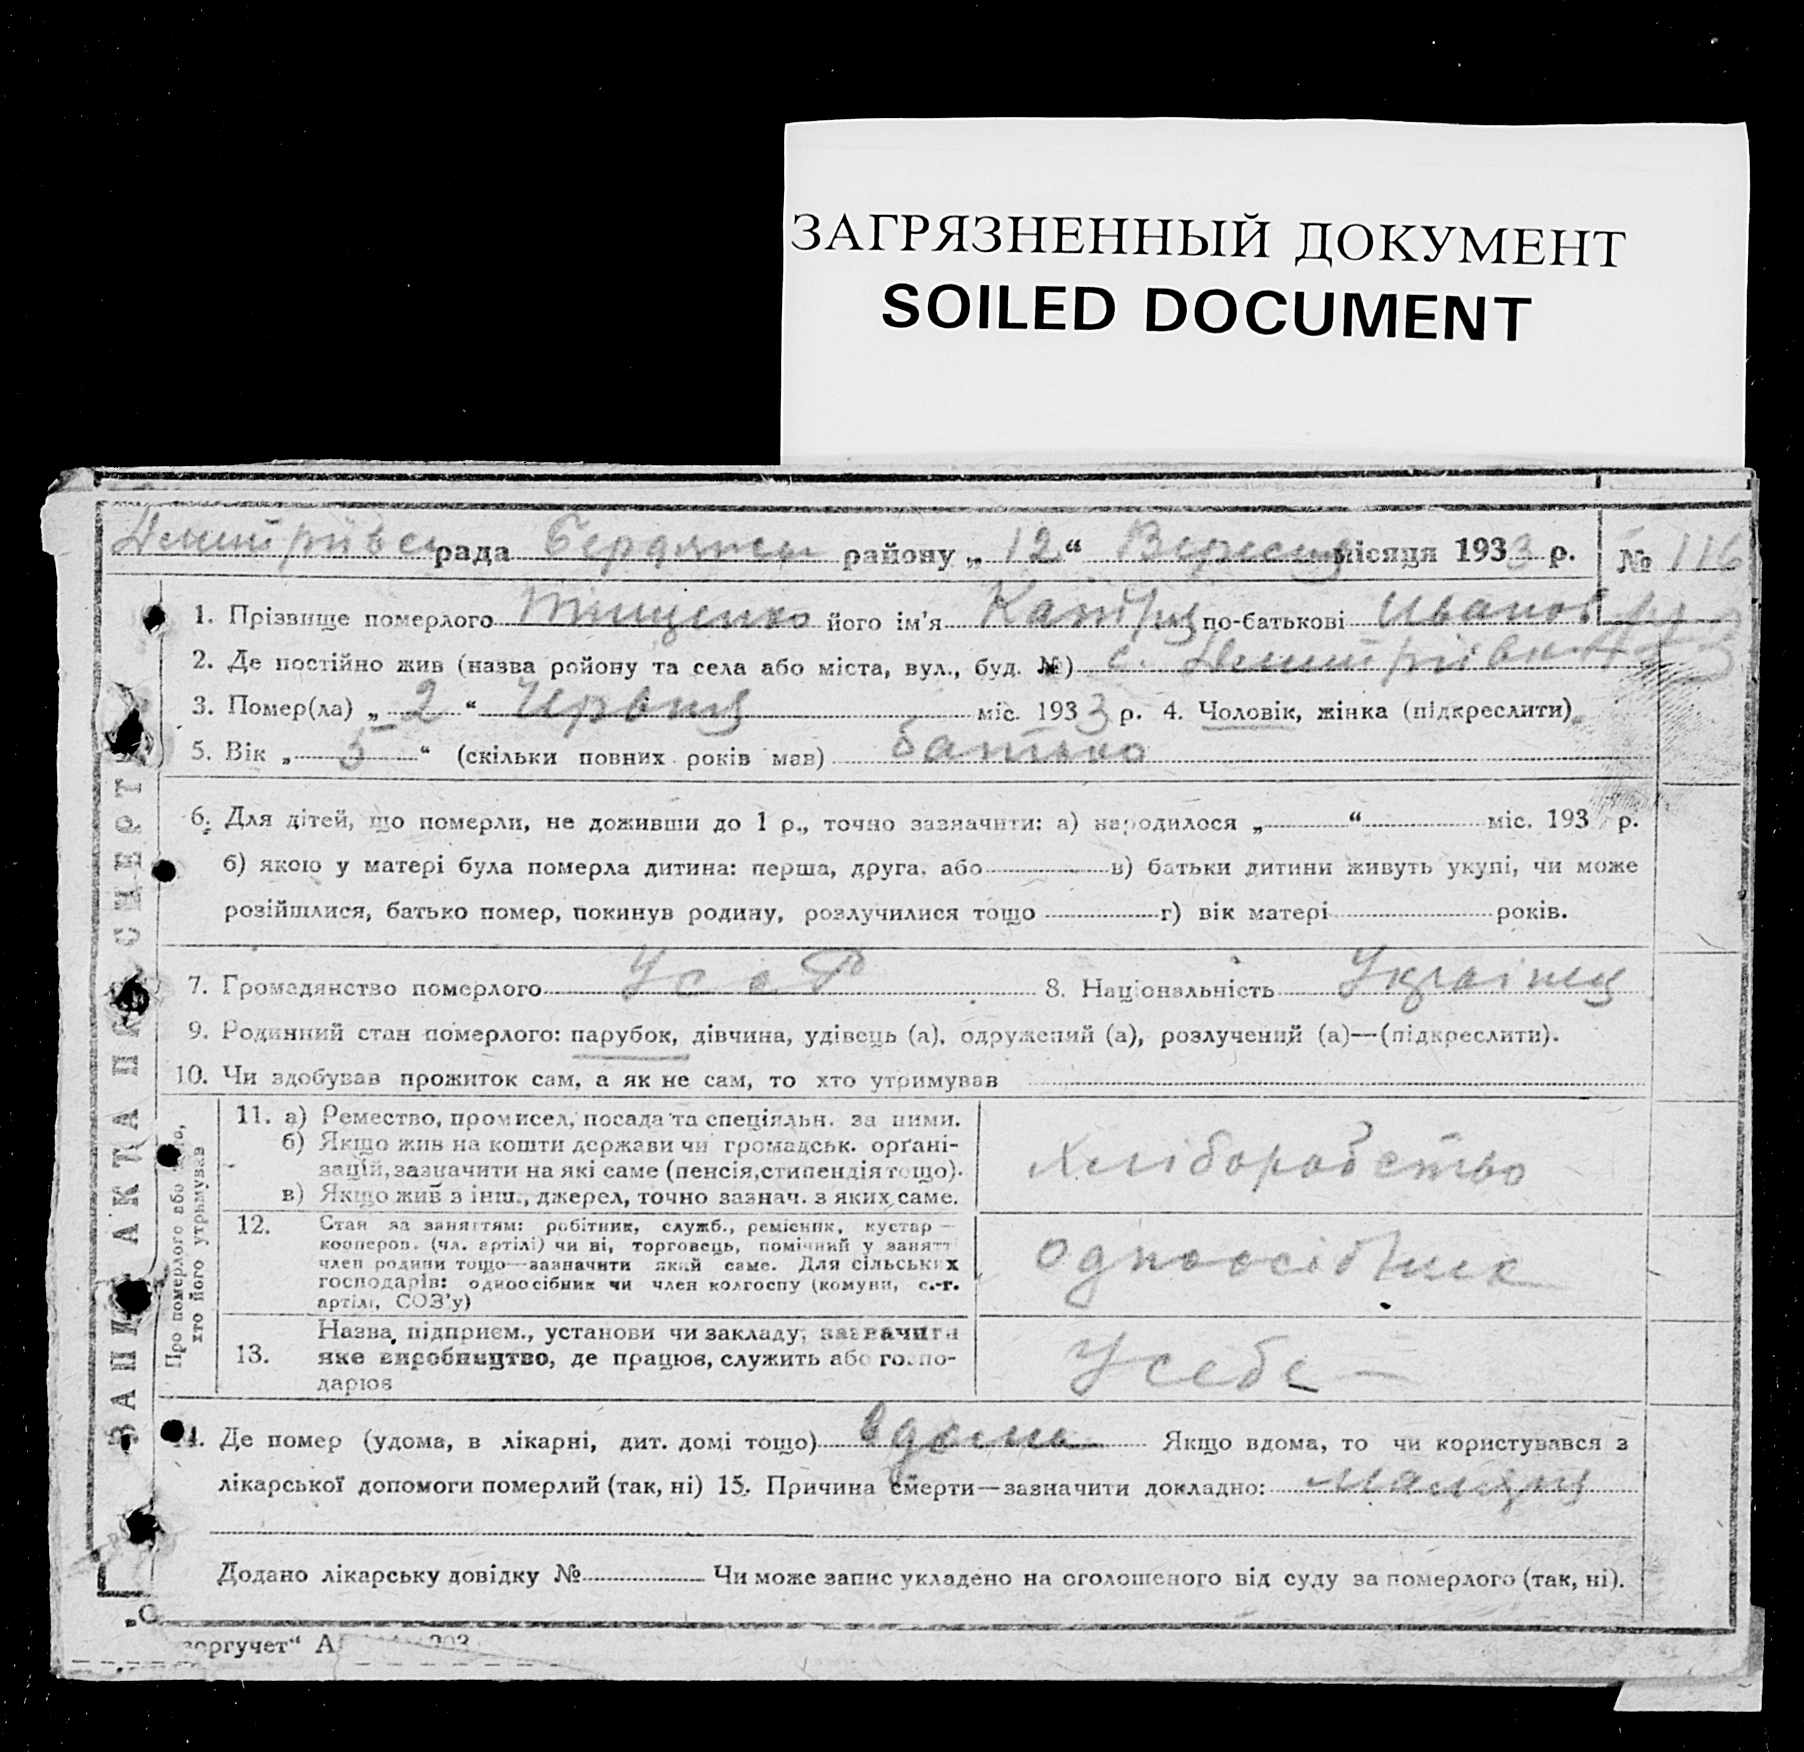 ЗАГРЯЗНЕННЫЙ ДОКУМЕНТ
SOILED DOCUMENT
рада Бердянськ району „ 12 “ Вересня місяця 1933 р. № 116
1. Прізвище померлого Тищенко його ім'я Катря по-батькові Иванов
2. Де постійно жив (назва району та села або міста, вул., буд. №) с. Дмитрівка
3. Помер(ла) „ 2 “ Червня міс. 1933 р. 4. Чоловік, жінка (підкреслити)
5. Вік „ 5 “ (скільки повних років мав) батько
6. Для дітей, що померли, не доживши до 1 р., точно зазначити: а) народилося „ “ міс. 193 р.
б) якою у матері була померла дитина: перша, друга, або в) батьки дитини живуть укупі, чи може
розійшлися, батько помер, покинув родину, розлучилися тощо г) вік матері років.
7. Громадянство померлого УССР 8. Національність Українц
9. Родинний стан померлого: парубок, дівчина, удівець (а), одружений (а), розлучений (а)—(підкреслити).
10. Чи здобував прожиток сам, а як не сам, то хто утримував
ЗАПИС АКТА ПРО СМЕРТЬ
Про померлого або того, хто його утримував
11. а) Ремество, промисел, посада та спеціяльн. за ними.
б) Якщо жив на кошти держави чи громадськ. орґані-
зацій, зазначити на які саме (пенсія, стипендія тощо).
в) Якщо жив з інш., джерел, точно зазнач. з яких саме.
Хліборобство
12. Стан за заняттям: робітник, служб., ремісник, кустар —
кооперов. (чл. артілі) чи ні, торговець, помічний у занятті
член родини тощо—зазначити який саме. Для сільських
господарів: одноосібник чи член колгоспу (комуни, с.-г.
артілі, СОЗ'у)
одноосібник
13. Назва підприєм., установи чи закладу; зазначити
яке виробництво, де працює, служить або госпо-
дарює
У себе —
14. Де помер (удома, в лікарні, дит. домі тощо) вдома Якщо вдома, то чи користувався з
лікарської допомоги померлий (так, ні) 15. Причина смерти—зазначити докладно:
Додано лікарську довідку № Чи може запис укладено на оголошеного від суду за померлого (так, ні).